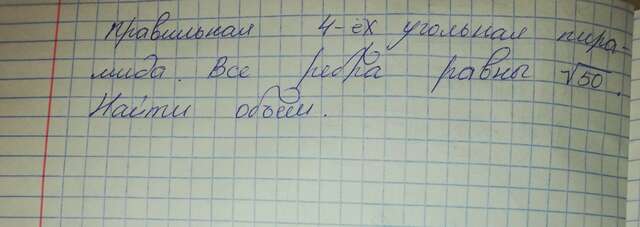 правильная 4-ёх угольная пира-
мида. Все ребра равны √50.
Найти объём.